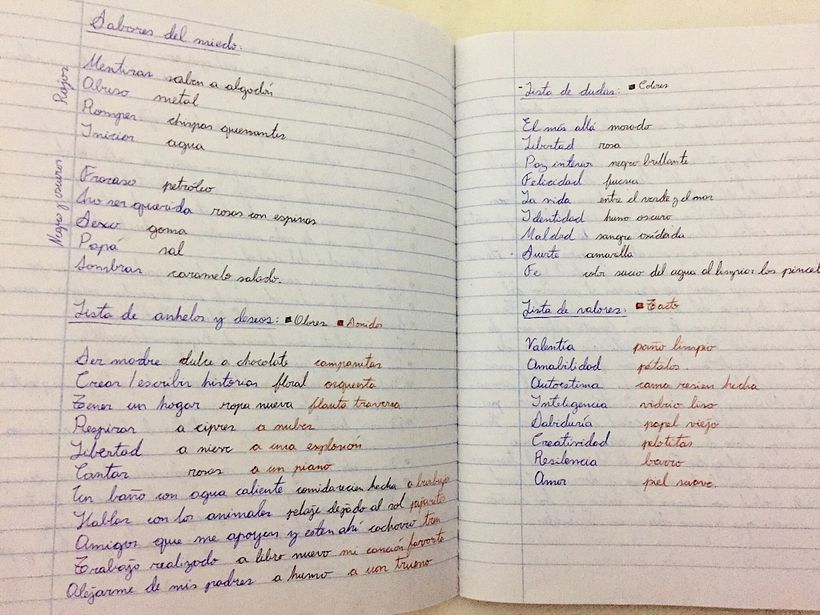 Sabores del miedo.
Rojos
Mentiras saben a algodón
Abuso metal
Romper chispas quemantes
Iniciar agua
Negro y oscuros
Fracaso petróleo
No ser querida rosas con espinas
Sexo goma
Papá sal
Sombras caramelo salado.
Lista de anhelos y deseos: Olores Sonidos
Ser madre dulce a chocolate campanitas
Crear/escribir historias floral orquesta
Tener un hogar ropa nueva flauta traversa
Respirar a ciprés a nubes
Libertad a nieve a una explosión
Cantar rosas a un piano
Un baño con agua caliente comida recien hecha a burbujas
Hablar con los animales pelaje dejado al sol pajaritos
Amigos que me apoyen y esten ahí cachorro tren
Trabajo realizado a libro nuevo mi canción favorita
Alejarme de mis padres a humo a un trueno
- Lista de dudas: Colores
El más allá morado
Libertad rosa
Paz interior negro brillante
Felicidad fucsia
La vida entre el verde y el mar
Identidad humo oscuro
Maldad sangre oxidada
Suerte amarilla
Fe color sucio del agua al limpiar los pincel
Lista de valores: Tacto
Valentía paño limpio
Amabilidad pétalos.
Autoestima cama recien hecha
Inteligencia vidrio liso
Sabiduría papel viejo
Creatividad pelotitas
Resilencia barro
Amor piel suave.